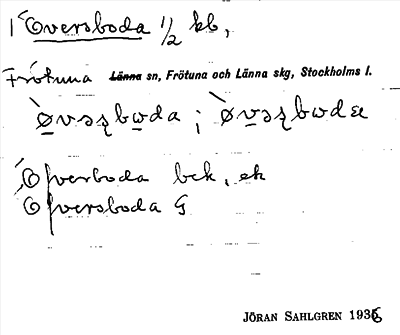 Oversboda 1/2 kb,
Frötuna Länna sn, Frötuna och Länna skg, Stockholms l.
Ofverboda bck, ek
Ofversboda G
JÖRAN SAHLGREN 1936